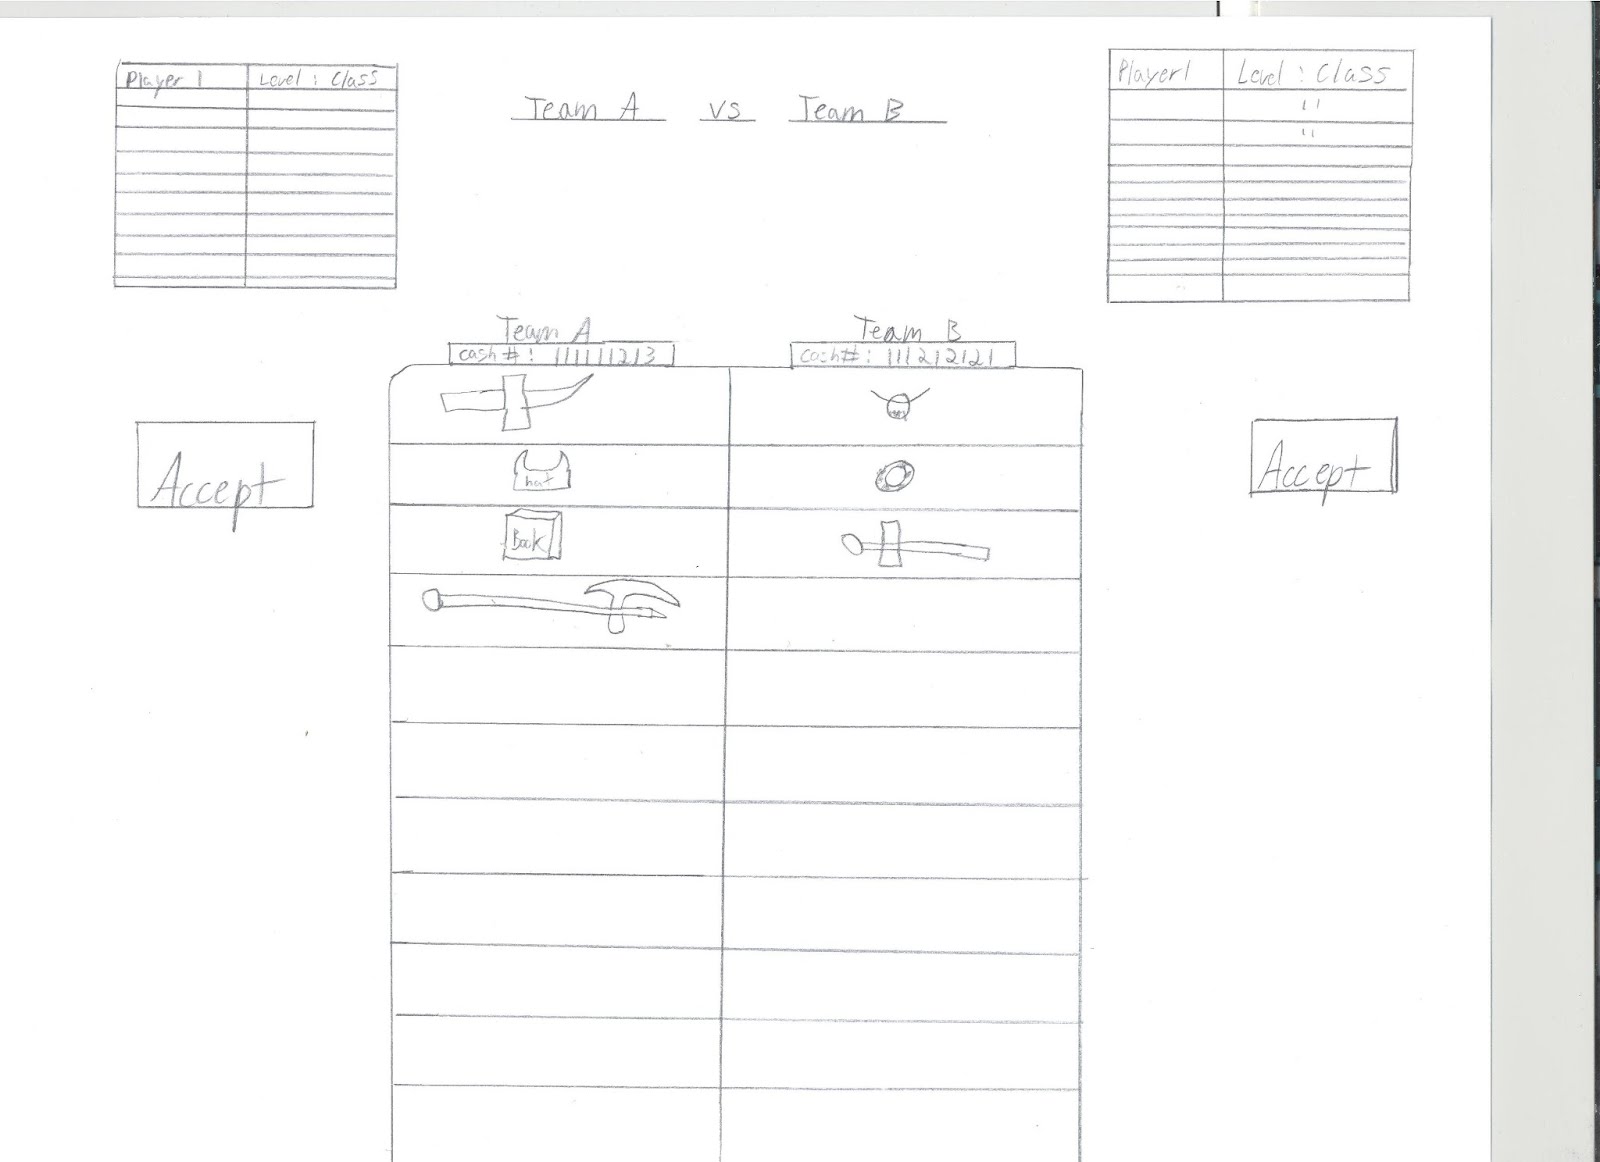 Player 1 Level : Class
Team A vs Team B
Player 1 Level : Class
"
"
Team A
cash # : 111111213
Team B
cash# : 111212121
Accept
hat
Book
Accept